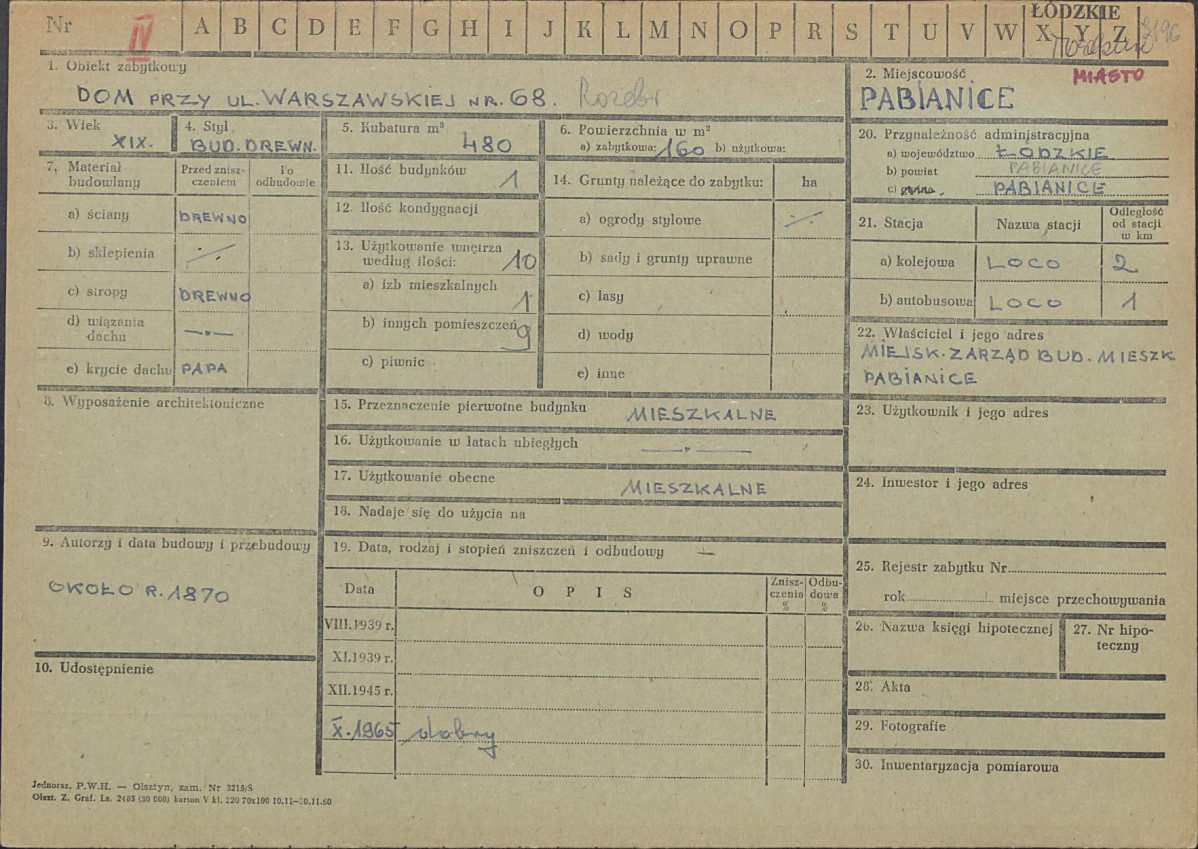 Nr IV A B C D E F G H I J K L M N O P R S T U V W X Y Z
ŁÓDZKIE
3196
1. Obiekt zabytkowy
DOM PRZY UL. WARSZAWSKIEJ NR. 68. Rozebr
2. Miejscowość MIASTO
PABIANICE
3. Wiek
XIX.
4. Styl
BUD. DREWN.
5. Kubatura m³
480
6. Powierzchnia w m²
a) zabytkowa: 160 b) użytkowa:
7. Materiał budowlany
Przed zniszczeniem
Po odbudowie
a) ściany DREWNO
b) sklepienia ·/·
c) stropy DREWNO
d) wiązania dachu —„—
e) krycie dachu PAPA
8. Wyposażenie architektoniczne
9. Autorzy i data budowy i przebudowy
OKOŁO R. 1870
10. Udostępnienie
11. Ilość budynków 1
12. Ilość kondygnacji
13. Użytkowanie wnętrza
według ilości: 10
a) izb mieszkalnych 1
b) innych pomieszczeń 9
c) piwnic
14. Grunty należące do zabytku: ha
a) ogrody stylowe ·/·
b) sady i grunty uprawne
c) lasy
d) wody
e) inne
15. Przeznaczenie pierwotne budynku MIESZKALNE
16. Użytkowanie w latach ubiegłych —„—
17. Użytkowanie obecne MIESZKALNE
18. Nadaje się do użycia na
19. Data, rodzaj i stopień zniszczeń i odbudowy —
Data OPIS Zniszczenia % Odbudowa %
VIII.1939 r.
XI.1939 r.
XII.1945 r.
X.1965 dobry
20. Przynależność administracyjna
a) województwo ŁÓDZKIE
b) powiat PABIANICE
c) gmina PABIANICE
21. Stacja Nazwa stacji Odległość od stacji w km
a) kolejowa LOCO 2
b) autobusowa LOCO 1
22. Właściciel i jego adres
MIEJSK. ZARZĄD BUD. MIESZK
PABIANICE
23. Użytkownik i jego adres
24. Inwestor i jego adres
25. Rejestr zabytku Nr
rok miejsce przechowywania
26. Nazwa księgi hipotecznej
27. Nr hipoteczny
28. Akta
29. Fotografie
30. Inwentaryzacja pomiarowa
Jednoraz. P.W.H. — Olsztyn, zam. Nr 3215/S
Olszt. Z. Graf. Lz. 2485 (30 000) karton V kl. 220 70x100 10.11—30.11.60